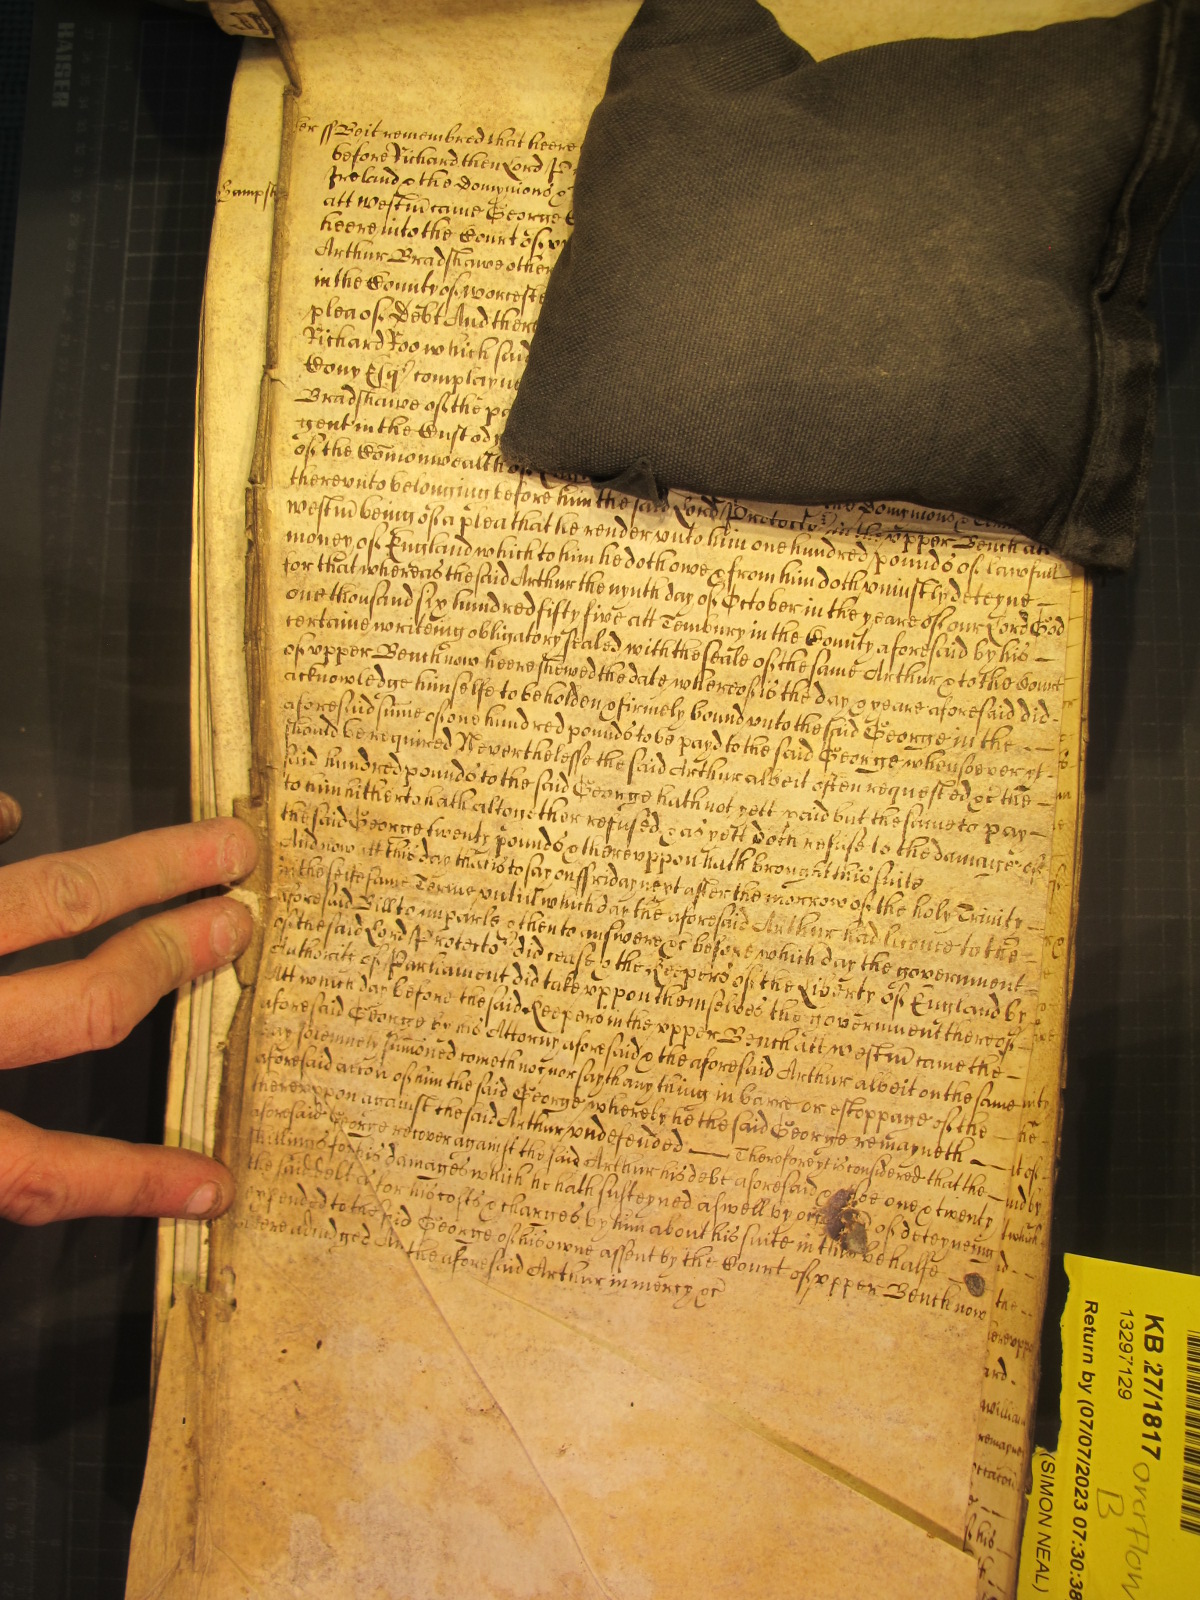 KAISER
ss Beit remembred that heere
before Richard then Lord
Ireland & the Dominions
att Westm̃ came George
heere into the Court of
Arthur Bradshawe other
in the County of Worceste
plea of Debt And there
Richard Roo which said
Cony Esq complayne
Bradshawe of the pa
gent in the Custody
of the Com̃onwealth of
therevnto belonging before him the said Lord Protector in the vpper Bench att
Westm̃ being of a plea that he render vnto him one hundred pounds of lawfull
money of England which to him he doth owe & from him doth vniustly deteyne
for that whereas the said Arthur the nynth day of October in the yeare of our Lord God
one thousand six hundred fifty five att Tembury in the County aforesaid by his
certaine writeing obligatory sealed with the seale of the same Arthur & to the Court
of vpper Bench now heere shewed the date whereof is the day & yeare aforesaid did
acknowledge himselfe to be holden & firmely bound vnto the said George in the
aforesaid sum̃e of one hundred pounds to be payd to the said George whensoever yt
should be required Neverthelesse the said Arthur albeit often requested &c the
said hundred pounds to the said George hath not yett paid but the same to pay
to him hitherto hath altogether refused & as yett doth refuse to the damage of
the said George twenty pounds & therevppon hath brought this suite
And now att this day that is to say on ffriday next after the morrow of the holy Trinity
in the selfe same Terme vntil which day the aforesaid Arthur had licence to the
aforesaid Bill to imparle & then to answere &c before which day the government
of the said Lord Protector did cease & the Keepers of the Liberty of England by
Authority of Parliament did take vppon themselves the government thereof
Att which day before the said Keepers in the vpper Bench att Westm̃ came the
aforesaid George by his Attorny aforesaid & the aforesaid Arthur albeit on the same
day solemnely sum̃oned cometh not nor sayth any thing in barre or estoppage of the
aforesaid accon of him the said George whereby he the said George remayneth
therevppon against the said Arthur vndefended Therefore yt is considered that the
aforesaid George recover against the said Arthur his debt aforesaid & one & twenty
shillings for his damages which he hath susteyned aswell by of deteyneing
the said debt as for his costs & charges by him about his suite in this behalfe
expended to the said George of his owne assent by the Court of vpper Bench now
heere adiudged And the aforesaid Arthur in mercy &c
KB 27/1817
13297129
Return by (07/07/2023 07:30:38
(SIMON NEAL)
overflow
B